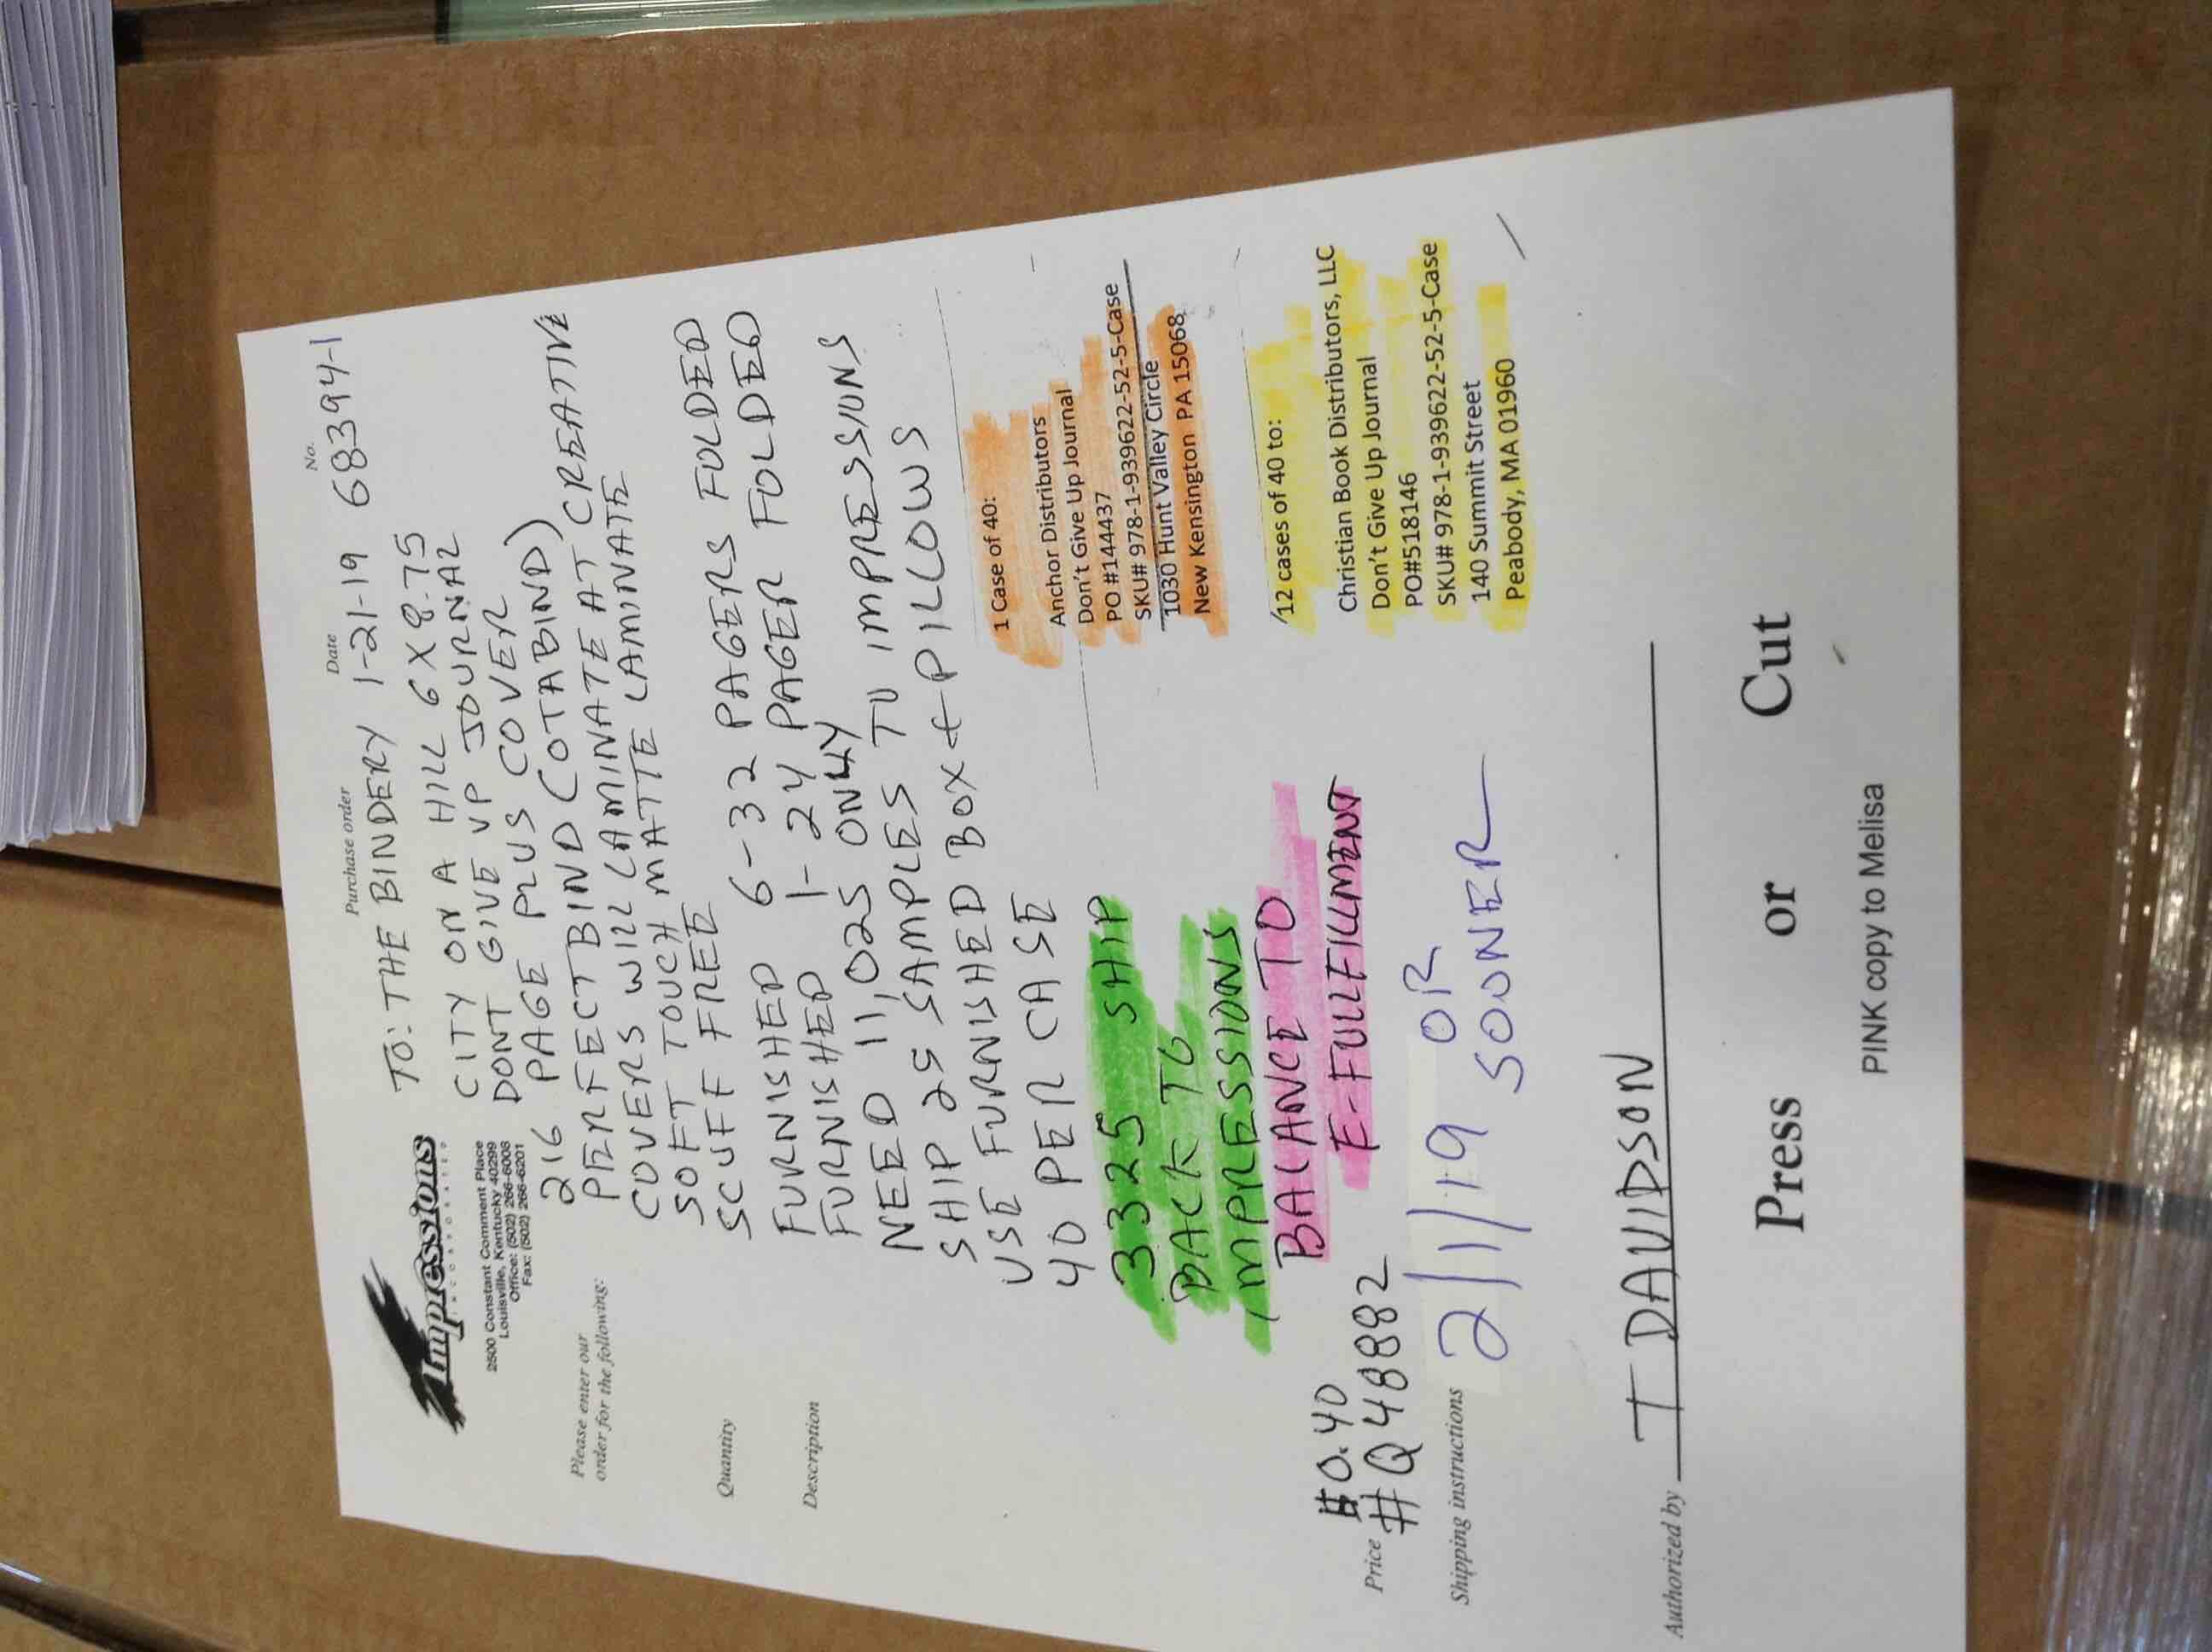 Impressions
INCORPORATED
2500 Constant Comment Place
Louisville, Kentucky 40299
Office: (502) 266-6008
Fax: (502) 266-6201
Purchase order
Date
No.
TO: THE BINDERY 1-21-19 683941-1
Please enter our
order for the following:
CITY ON A HILL 6 X 8.75
DONT GIVE UP JOURNAL
216 PAGE PLUS COVER
PERFECT BIND (OTABIND)
COVERS WILL LAMINATE AT CREATIVE
SOFT TOUCH MATTE LAMINATE
SCUFF FREE
Quantity
FURNISHED 6-32 PAGERS FOLDED
FURNISHED 1-24 PAGER FOLDED
Description
NEED 11,025 ONLY
SHIP 25 SAMPLES TO IMPRESSIONS
USE FURNISHED BOX + PILLOWS
40 PER CASE
3325 SHIP
BACK TO
IMPRESSIONS
BALANCE TO
E-FULLFILLMENT
1 Case of 40:
Anchor Distributors
Don't Give Up Journal
PO #144437
SKU# 978-1-939622-52-5-Case
1030 Hunt Valley Circle
New Kensington PA 15068
12 cases of 40 to:
Christian Book Distributors, LLC
Don't Give Up Journal
PO#518146
SKU# 978-1-939622-52-5-Case
140 Summit Street
Peabody, MA 01960
Price #0.40
#Q48882
Shipping instructions 2/1/19 OR
SOONER
Authorized by T DAVIDSON
Press or Cut
PINK copy to Melisa